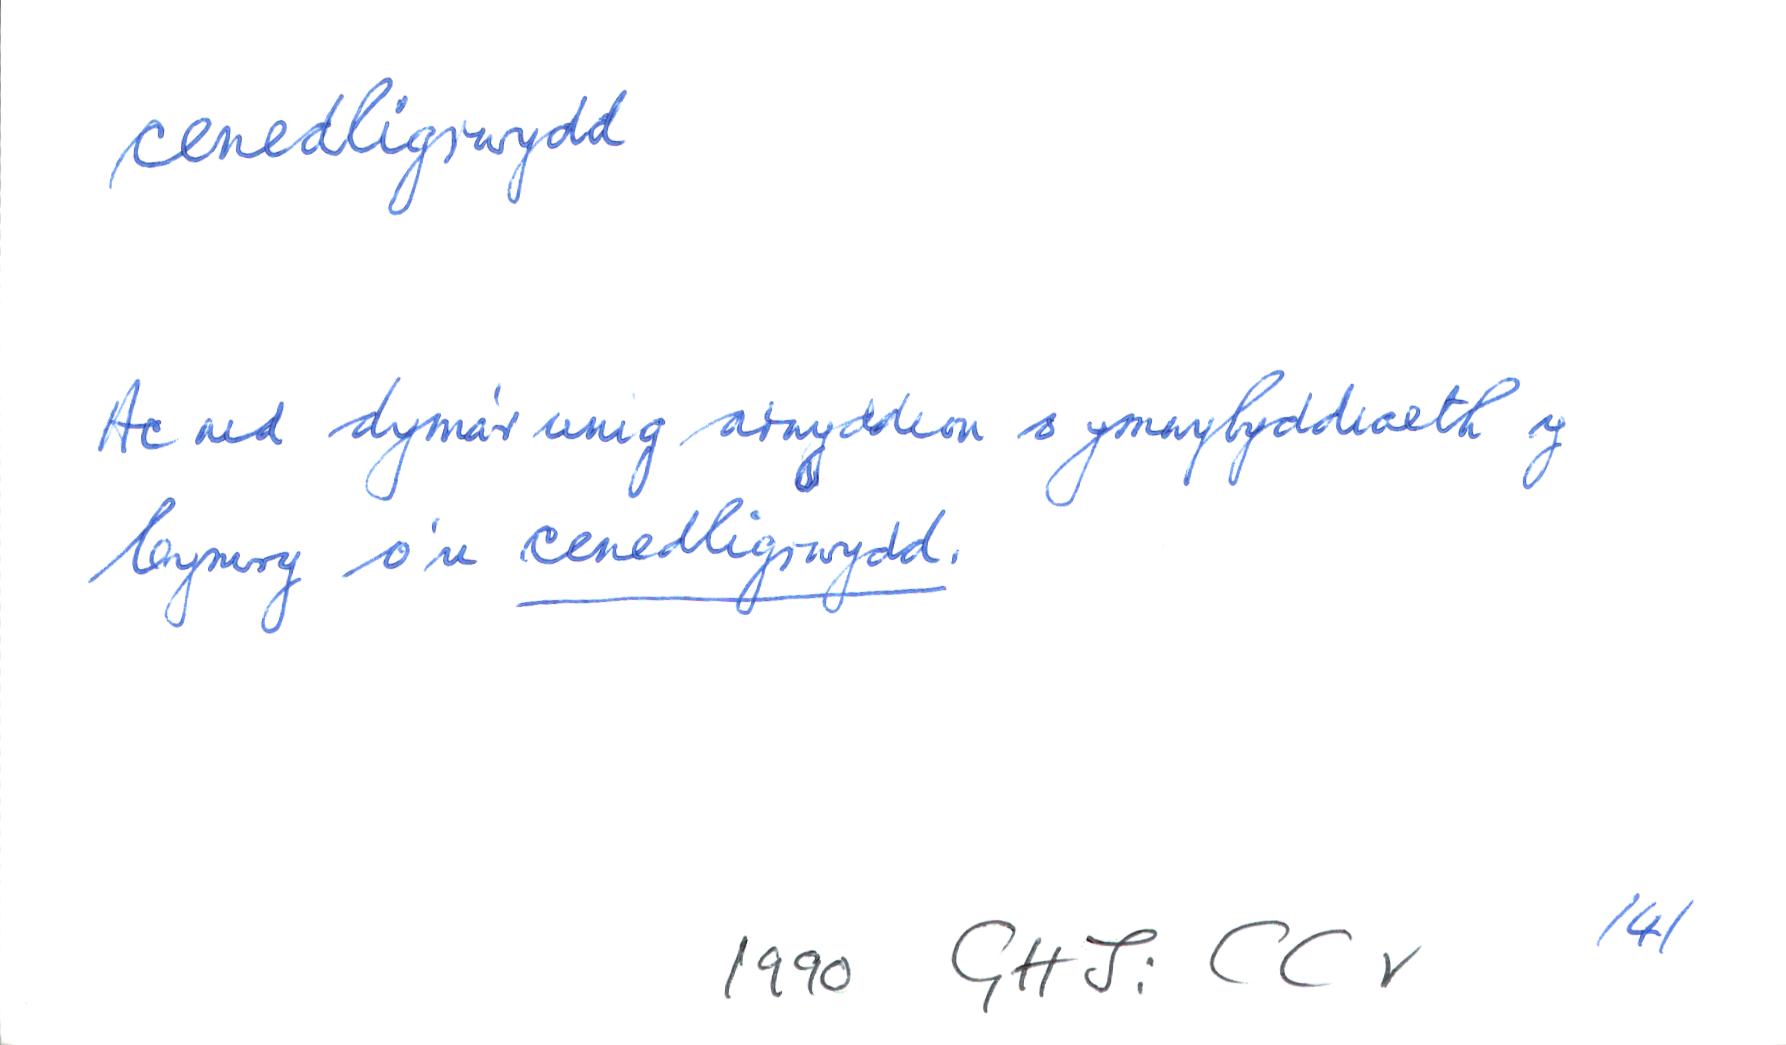 cenedligrwydd
Ac nid dyma'r unig arwyddion o ymwybyddiaeth y
Cymry o'u cenedligrwydd.
1990 GHJ: CC v 141